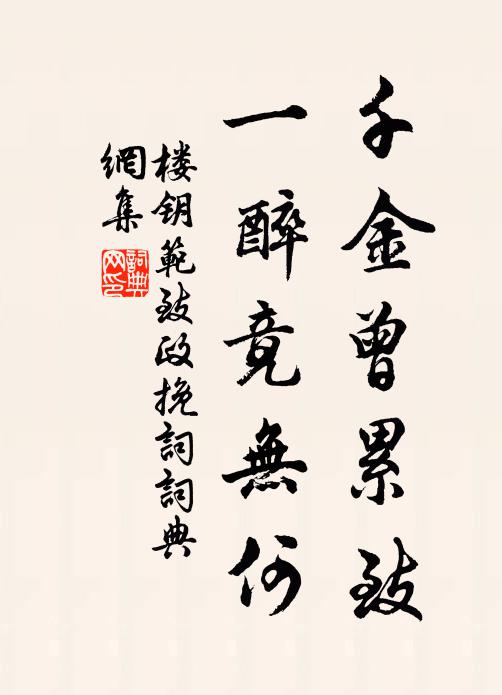 千金曾累致
一醉竟無何
楼钥範致政挽詞詞典
網集
詞典
网印